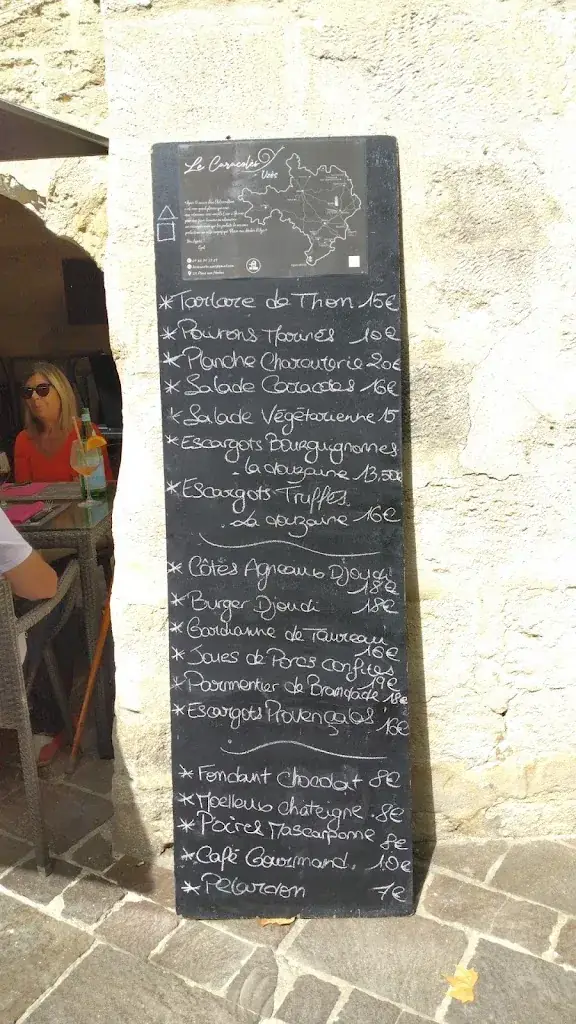 Le Caracoles
Uzès
* Tartare de Thon 15€
* Poivrons Marinés 10€
* Planche Charcuterie 20€
* Salade Caracoles 16€
* Salade Végétarienne 15
* Escargots Bourguignonnes
la douzaine 13,50€
* Escargots Truffes
. La douzaine 16€
* Côtes Agneaux Djoudi
18€
* Burger Djoudi 18€
* Gardianne de Taureau
16€
* Joues de Porcs confites
19€
* Parmentier de Brandade 18€
* Escargots Provençales 16€
* Fondant Chocolat 8€
* Moelleux chataigne . 8€
* Poires Mascarpone
8€
* Café Gourmand. 10€
* Pelardon 7€